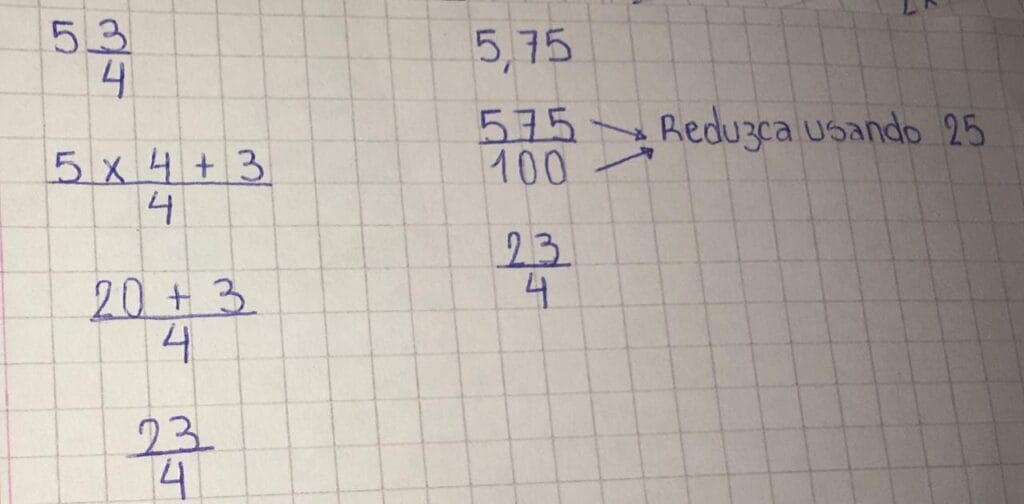 5 3/4
5 x 4 + 3
4
20 + 3
4
23
4
5,75
575
100
Reduzca usando 25
23
4